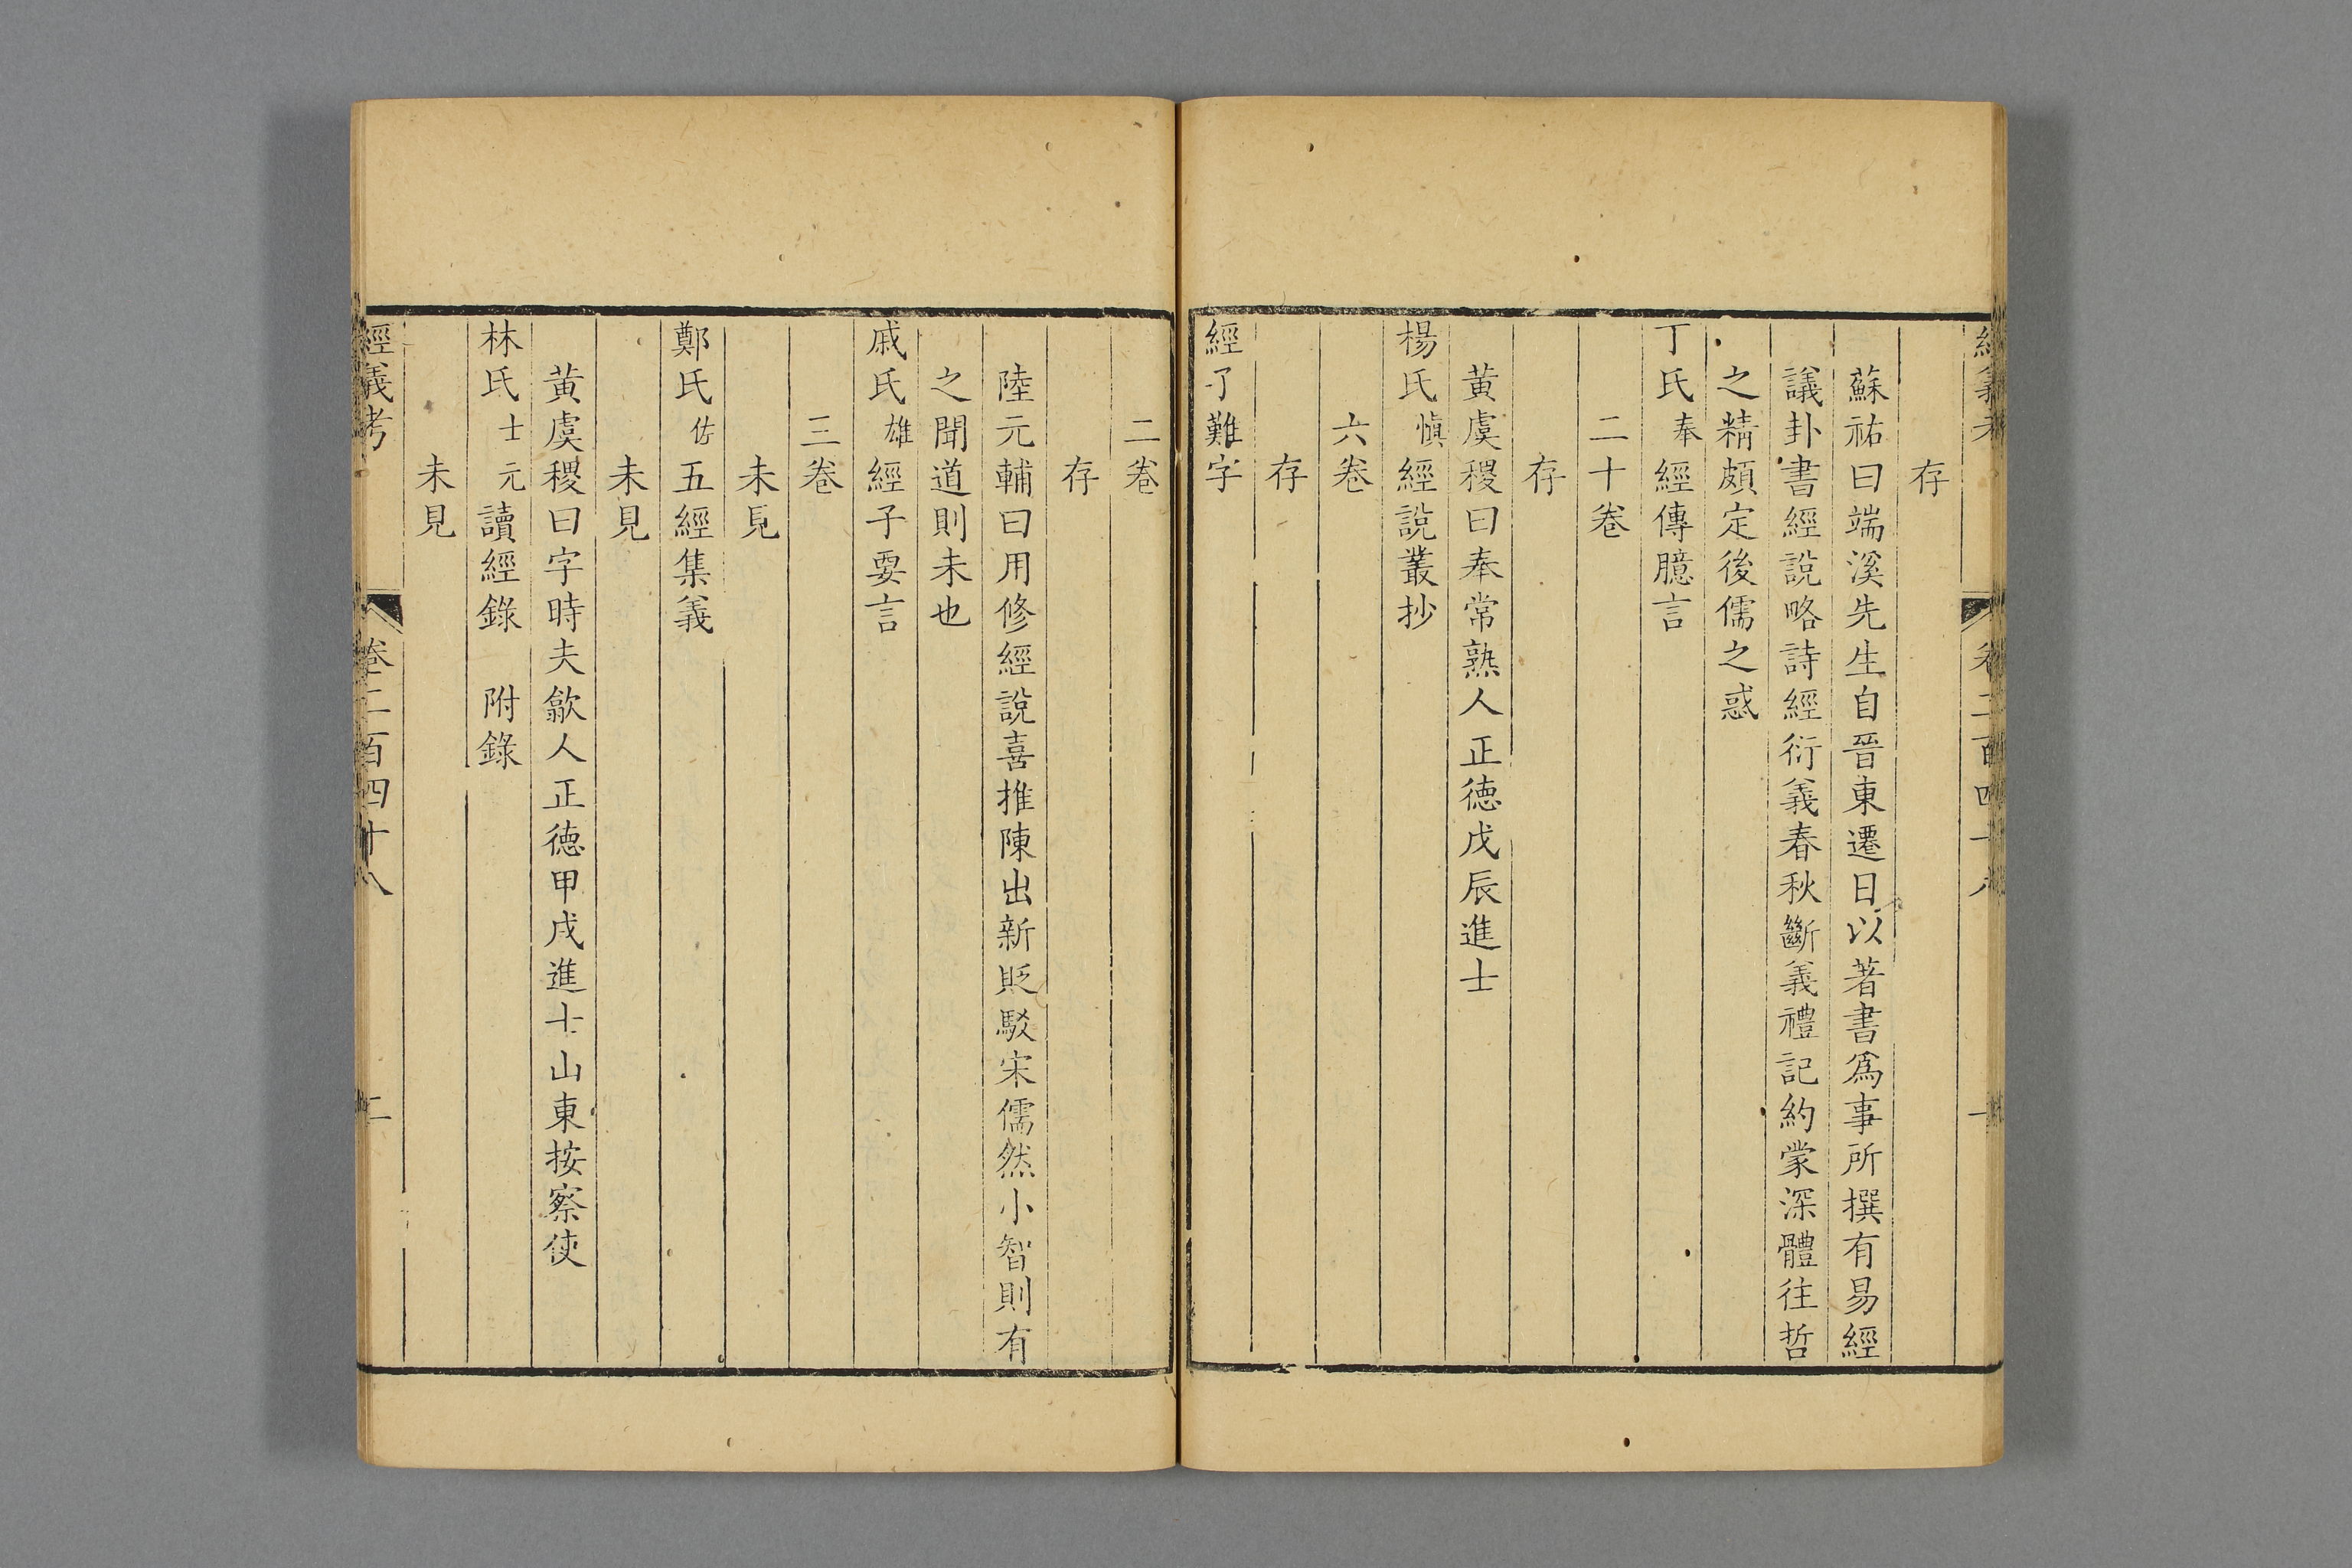 存
蘇祐曰端溪先生自晉東遷日以著書爲事所撰有易經
議卦書經說略詩經衍義春秋斷義禮記約蒙深體往哲
之精頗定後儒之惑
丁氏奉經傳臆言
二十卷
存
黃虞稷曰奉常熟人正德戊辰進士
楊氏慎經說叢抄
六卷
存
經子難字
二卷
存
陸元輔曰用修經說喜推陳出新貶駁宋儒然小智則有
之聞道則未也
戚氏雄經子要言
三卷
未見
鄭氏佐五經集義
未見
黃虞稷曰字時夫歙人正德甲戌進士山東按察使
林氏士元讀經錄 附錄
未見
經義考 卷二百四十八 二